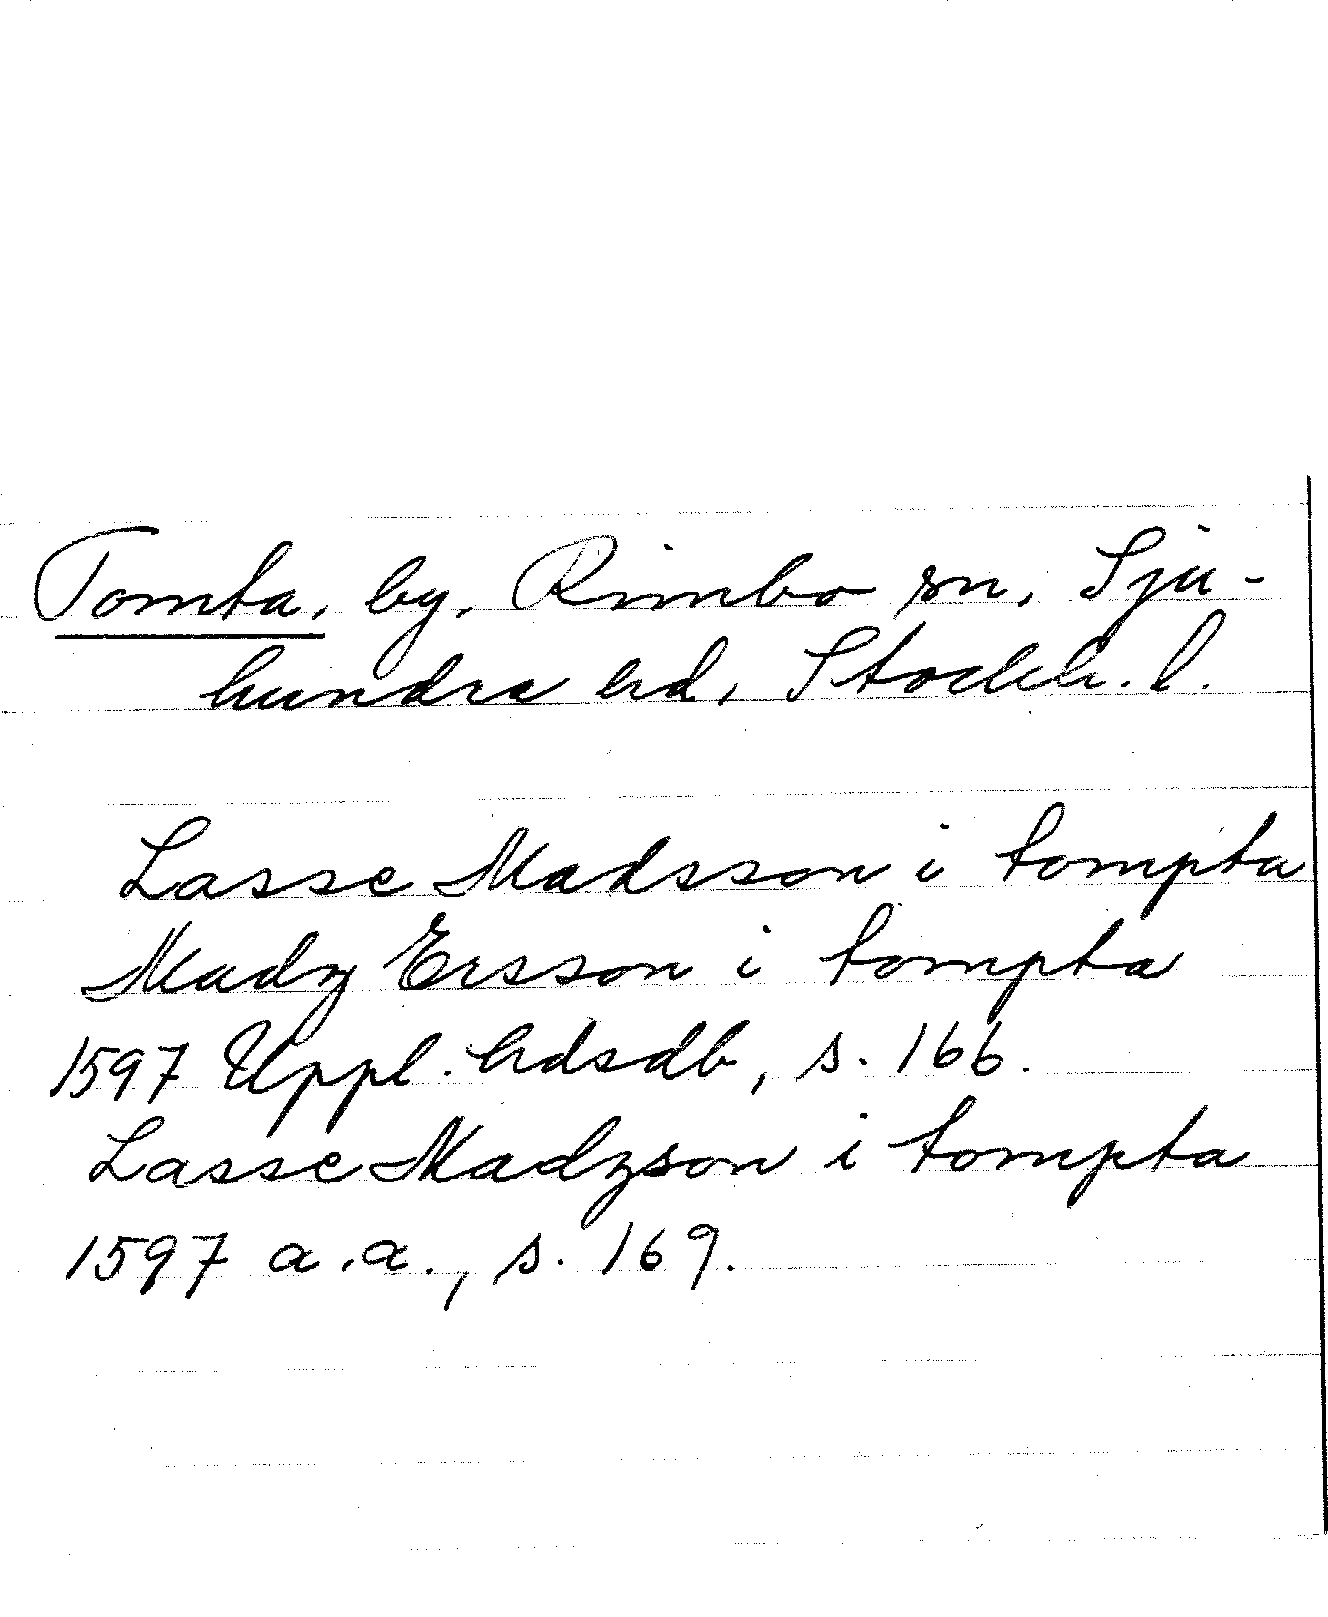 Tomta, by, Rimbo sn, Sju-
hundra hd, Stockh. l.
Lasse Madsson i tompta
Madz Ersson i tompta
1597 Uppl. hdsdb, s. 166.
Lasse Madzson i tompta
1597 a.a., s. 169.